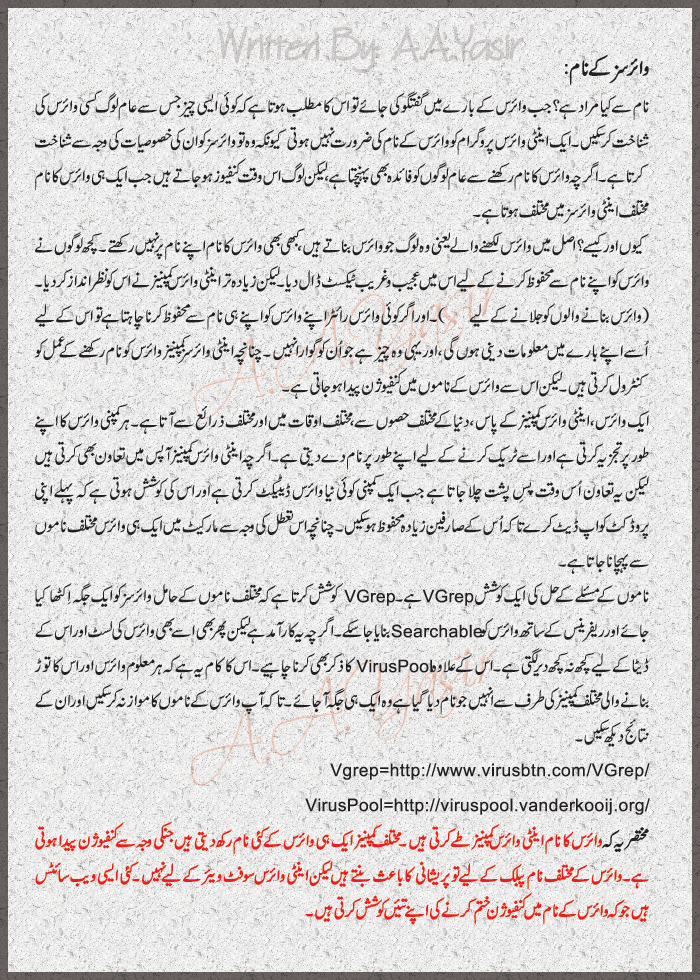 Written By: A.A.Yasir
وائرسز کے نام:
نام سے کیا مراد ہے؟ جب وائرس کے بارے میں گفتگو کی جائے تو اس کا مطلب ہوتا ہے کہ کوئی ایسی چیز جس سے عام لوگ کسی وائرس کی
شناخت کر سکیں۔ ایک اینٹی وائرس پروگرام کو وائرس کے نام کی ضرورت نہیں ہوتی کیونکہ وہ تو وائرسز کو ان کی خصوصیات کی وجہ سے شناخت
کرتا ہے۔ اگرچہ وائرس کا نام رکھنے سے عام لوگوں کو فائدہ بھی پہنچتا ہے، لیکن لوگ اس وقت کنفیوز ہو جاتے ہیں جب ایک ہی وائرس کا نام
مختلف اینٹی وائرسز میں مختلف ہوتا ہے۔
کیوں اور کیسے؟ اصل میں وائرس لکھنے والے یعنی وہ لوگ جو وائرس بناتے ہیں، کبھی بھی وائرس کا نام اپنے نام پر نہیں رکھتے۔ کچھ لوگوں نے
وائرس کو اپنے نام سے محفوظ کرنے کے لیے اس میں عجیب و غریب ٹیکسٹ ڈال دیا۔ لیکن زیادہ تر اینٹی وائرس کمپنیز نے اس کو نظر انداز کر دیا۔
(وائرس بنانے والوں کو جلانے کے لیے )۔ اور اگر کوئی وائرس رائٹر اپنے وائرس کو اپنے ہی نام سے محفوظ کرنا چاہتا ہے تو اس کے لیے
اُسے اپنے بارے میں معلومات دینی ہوں گی، اور یہی وہ چیز ہے جو اُن کو گوارا نہیں۔ چنانچہ اینٹی وائرسز کمپنیز وائرس کو نام رکھنے کے عمل کو
کنٹرول کرتی ہیں۔ لیکن اس سے وائرس کے ناموں میں کنفیوژن پیدا ہو جاتی ہے۔
ایک وائرس، اینٹی وائرس کمپنیز کے پاس، دنیا کے مختلف حصوں سے، مختلف اوقات میں اور مختلف ذرائع سے آتا ہے۔ ہر کمپنی وائرس کا اپنے
طور پر تجزیہ کرتی ہے اور اسے ٹریک کرنے کے لیے اپنے طور پر نام دے دیتی ہے۔ اگرچہ اینٹی وائرس کمپنیز آپس میں تعاون بھی کرتی ہیں
لیکن یہ تعاون اُس وقت پس پشت چلا جاتا ہے جب ایک کمپنی کوئی نیا وائرس ڈیٹیکٹ کرتی ہے اور اس کی کوشش ہوتی ہے کہ پہلے اپنی
پروڈکٹ کو اپ ڈیٹ کرے تاکہ اُس کے صارفین زیادہ محفوظ ہو سکیں۔ چنانچہ اس تعطل کی وجہ سے مارکیٹ میں ایک ہی وائرس مختلف ناموں
سے پہچانا جاتا ہے۔
ناموں کے مسئلے کے حل کی ایک کوشش VGrep ہے۔ VGrep کوشش کرتا ہے کہ مختلف ناموں کے حامل وائرسز کو ایک جگہ اِکٹھا کیا
جائے اور ریفرینس کے ساتھ وائرس کو Searchable بنایا جا سکے۔ اگرچہ یہ کارآمد ہے لیکن پھر بھی اسے بھی وائرس کی لسٹ اور اس کے
ڈیٹا کے لیے کچھ نہ کچھ دیر لگتی ہے۔ اس کے علاوہ VirusPool کا ذکر بھی کرنا چاہیے۔ اس کا کام یہ ہے کہ ہر معلوم وائرس اور اس کا توڑ
بنانے والی مختلف کمپنیز کی طرف سے انہیں جو نام دیا گیا ہے وہ ایک ہی جگہ آ جائے۔ تاکہ آپ وائرس کے ناموں کا موازنہ کر سکیں اور ان کے
نتائج دیکھ سکیں۔
Vgrep=http://www.virusbtn.com/VGrep/
VirusPool=http://viruspool.vanderkooij.org/
مختصر یہ کہ وائرس کا نام اینٹی وائرس کمپنیز طے کرتی ہیں۔ مختلف کمپنیز ایک ہی وائرس کے کئی نام رکھ دیتی ہیں جنکی وجہ سے کنفیوژن پیدا ہوتی
ہے۔ وائرس کے مختلف نام پبلک کے لیے تو پریشانی کا باعث بنتے ہیں لیکن اینٹی وائرس سوفٹ ویئر کے لیے نہیں۔ کئی ایسی ویب سائٹس
ہیں جو کہ وائرس کے نام میں کنفیوژن ختم کرنے کی اپنے تئیں کوشش کرتی ہیں۔
A.A.Yasir
A.A.Yasir